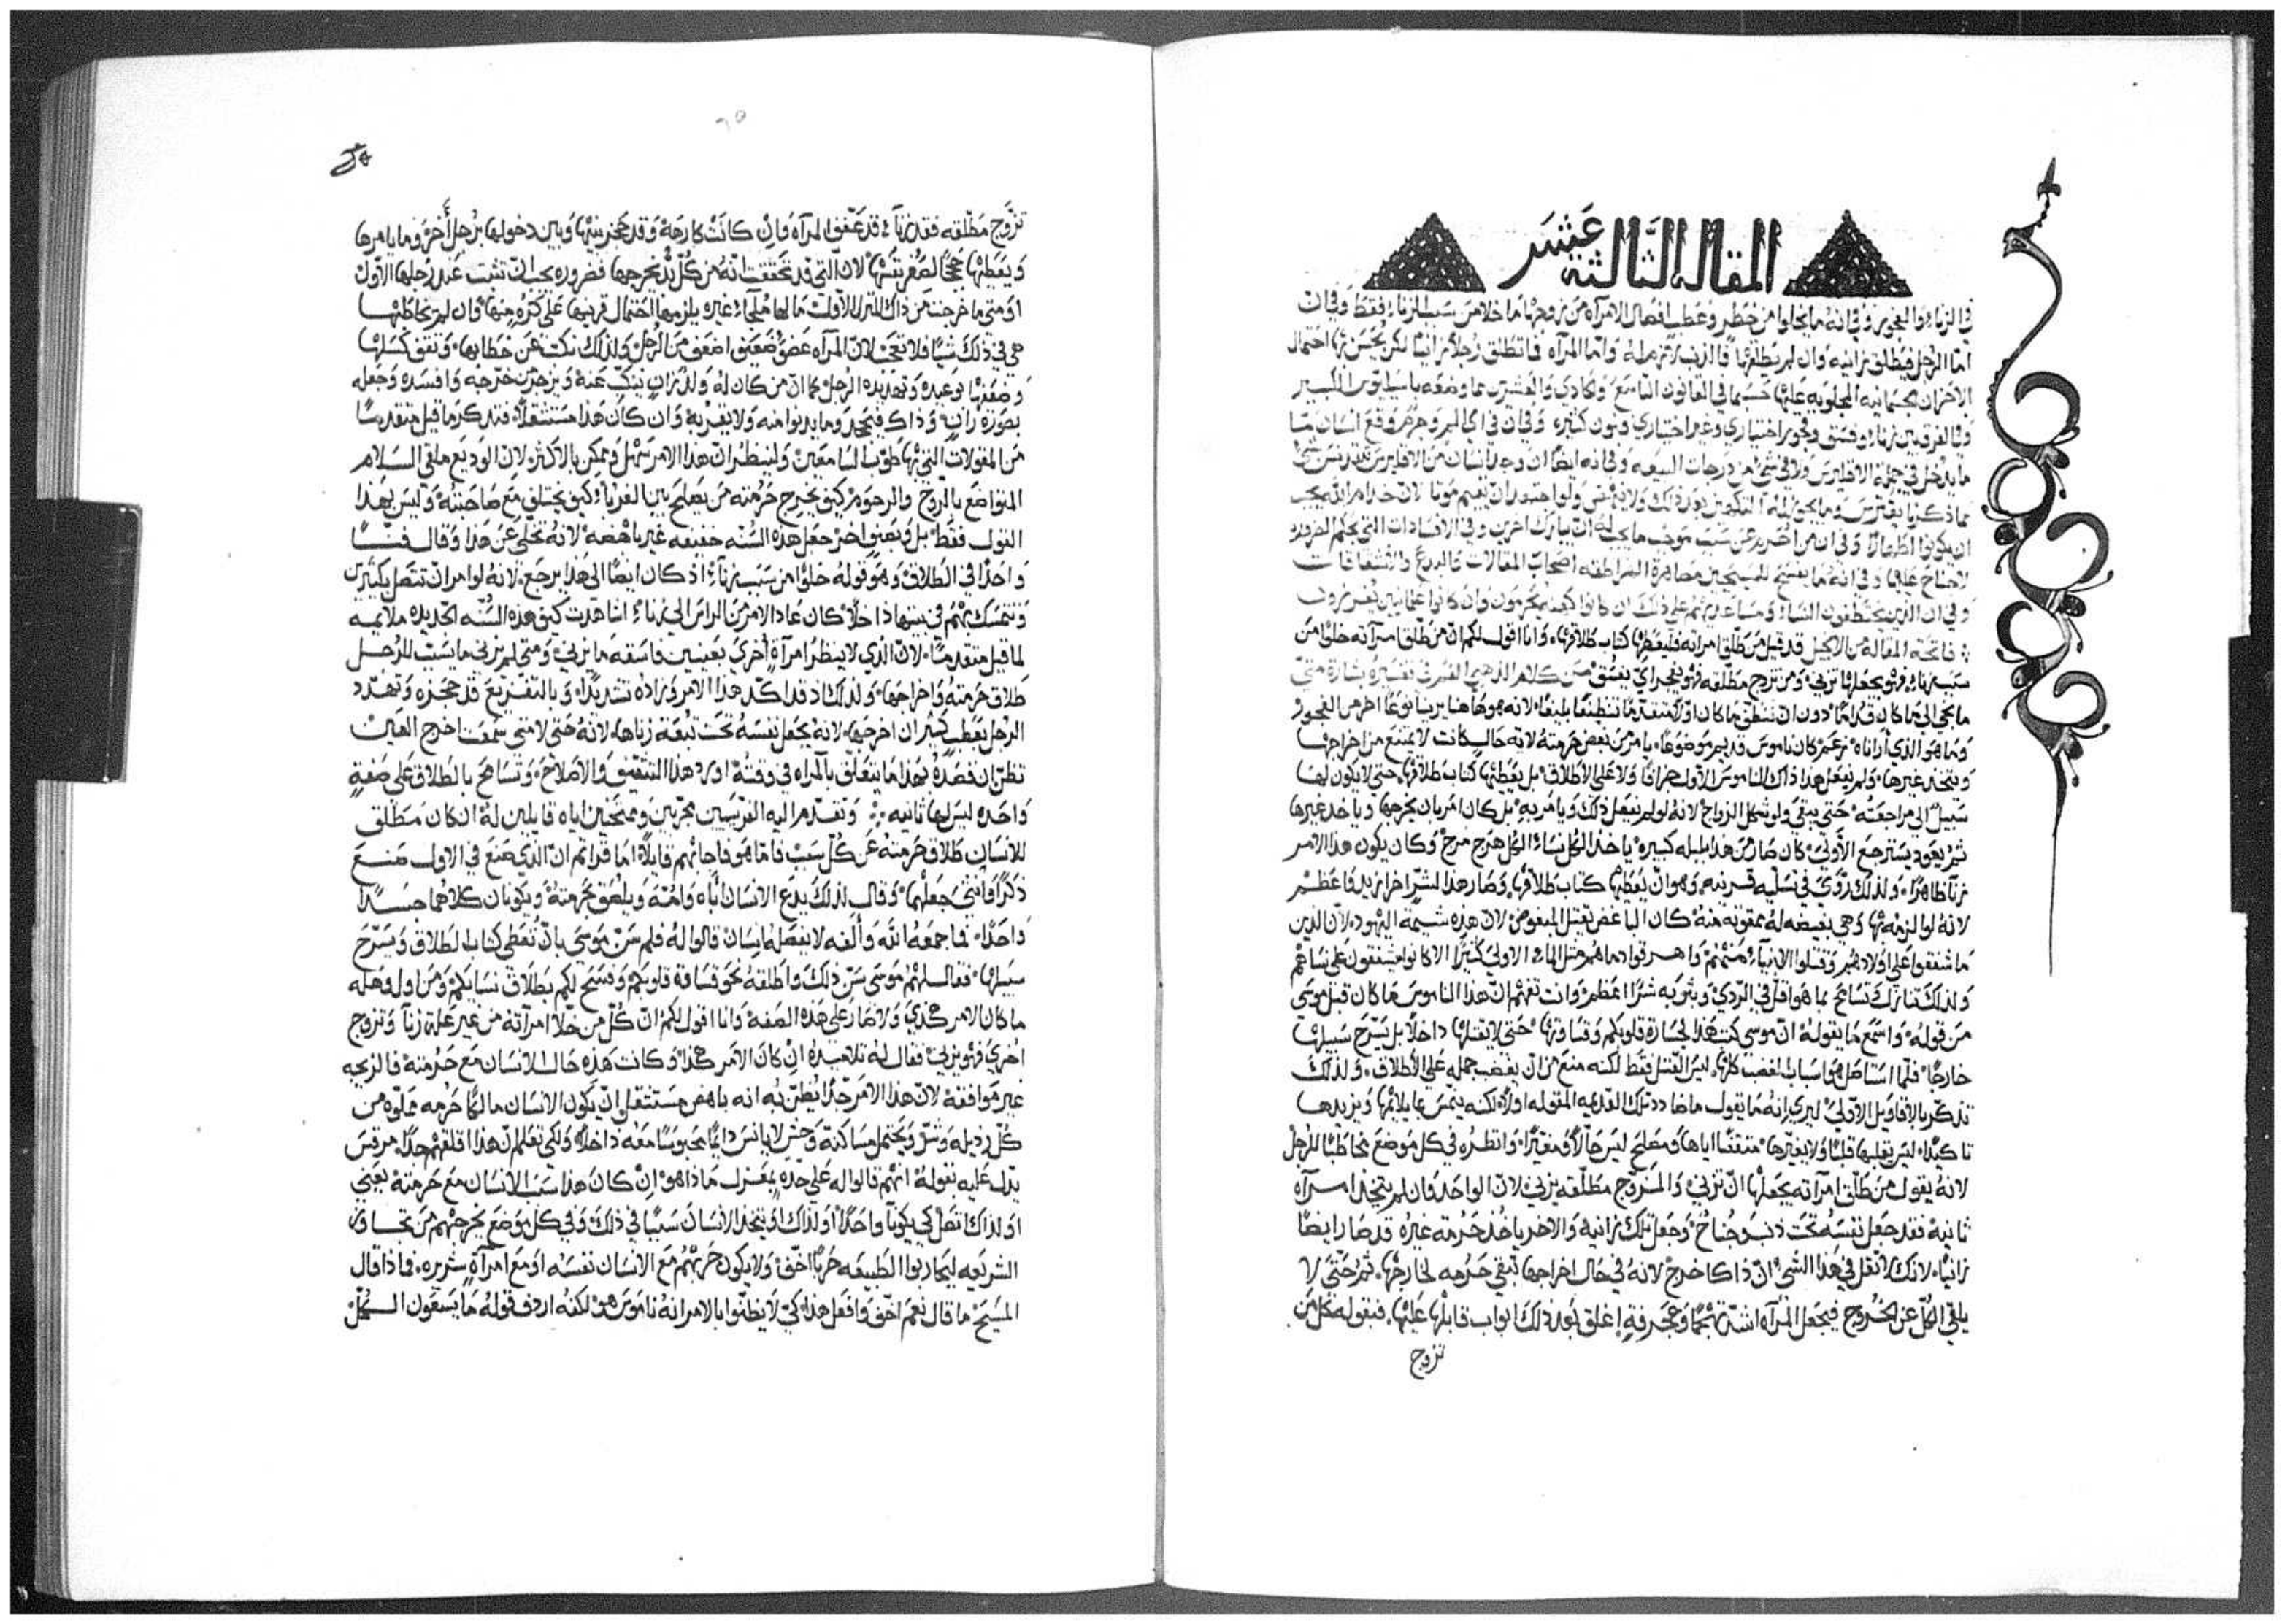 المقاله الثالثة عشر
في الزناء والفجور وفي انه ما يخلوا من خطر وعطب انفصال الامرآه من زوجها ما خلا من سبب الزناء فقط وفي ان
امّا الرجل فيطلق زانيه وان لم يطلقها فالذنب يلزمه وامّا المرآه فما تطلق رجلاً زانيًا لكن يحسن بها احتمال
الاحزان الجسمانيه المجلوبه عليها حسبما في القانون التاسع والحادي والعشرين مما وضعه باسيليوس الكبير
وفي الفرق بين زناء وفسق وفجور اختياري وغير اختياري
ما يدخل في جملة الاقليرس ولا في شي من درجات البيعه وفي انه ايضًا ان وجد انسان من الاقليرس
ان يكونوا اطهارًا وفي ان من احُرم عن سبب موجب ما يجب له ان يبارك اخرين وفي الافسادات التي بحكم الضروره
لا جناح عليها وفي انه ما يفسح للمسيحيين مصاهرة الهراطقه اصحاب المقالات والبدع والانشقاقات
وفي ان الذين يختطفون النساء ومساعديهم على ذلك ان كانوا كهنه يُحرمون وان كانوا علمانيين يُفرزون
فاتحة المقاله من الانجيل قد قيل من طلّق امراته فليعطها كتاب طلاقها، وانا اقول لكم ان من طلّق امرآته خلوًا من
سبب زناء فهو يجعلها تزني، ومن تزوج مطلّقه فهو يفجر اي يفسق من كلام الذهبي الفم في تفسيره بشارة متي
ما يجي الى ما كان قدّامًا دون ان ينظّف ما كان اوّلاً متقدّمًا تنظيفًا بليغًا لانه هوذا هاهنا يرينا نوعًا اخر من الفجور
وما هو الذي أرأناه زعم كان ناموس قديم موضوعًا، يامر من بغض حرمته لاية حال كانت لا يمنع من اخراجها
ويتخذ غيرها، ولم يفعل هذا ذاك الناموس الاول جزافًا ولا على الاطلاق بل يعطيها كتاب طلاقها، حتى لا يكون لها
سبيل الى مراجعته، حتى يبقى ولو شكل الزواج لانه لو لم يفعل ذلك ويامر به بل كان امر بان يخرجها وياخذ غيرها
ثم يعود يسترجع الأولى، كان صار من هذا بلبله كبيره ياخذ الكل نساء الكل هرج مرج وكان يكون هذا الامر
زنآ ظاهرًا، ولذلك روّى في تسلية قرينه وهو ان يعطيها كتاب طلاقها، وصار هذا لشرٍّ اخر ازيد واعظم
لانه لو الزمه بها وهي بغيضه له ممقوته منه كان الباغض يقتل المبغوض، لان هذه شيمة اليهود، لان الذين
ما شفقوا على اولادهم وقتلوا الانبياء منهم واهرقوا دماهم مثل الماء الاولى كثيرًا الا كانوا يشفقون على نساهم
ولذلك تنازل وتسامح بما هو اقل في الردي وبتّر به شرًا اعظم، وانت تفهم ان هذا الناموس ما كان قبل موسى
من قوله، واسمع ما يقوله ان موسى كتب هذا لجسارة قلوبكم وقساوتها حتى لا يقتلها داخلاً بل يسرّح سبيلها
خارجًا، فلمّا استاصل هو اسباب الغضب كلها، ليس القتل فقط لكنه منع من ان يغضب جمله على الأطلاق، ولذلك
تذكّر بالاقاويل الاولى، ليري انه ما يقول ما ضادد تلك القديمه المقوله اولاً لكنه يتمّس بما يلائمها ويزيدها
تاكيدًا، ليس يقلبها قلبًا ولا يغيّرها متقفًا اياها ومصلح ليس حالاً ومغيّرًا، وانظره في كل موضع مخاطبًا للرجل
لانه يقول من طلّق امرآته يجعلها ان تزني، والمتزوّج مطلّقه يزني، لان الواحد وان لم يتخذ امرآه
ثانية فقد جعل نفسه تحت ذنب وجُناح وجعل تلك زانيه والاخر ياخذ حرمة غيره قد صار ايضًا
زانيًا، لانك لا تقل في هذا الشي ان ذاكا خرج لانه في حال اخراجها تبقى حرمه لمخارجها، ثم حتى لا
يلقي الكلّ عن الخروج فيجعل المرآه اشدّ تهجّمًا وعجرفةٍ إغلق بعد ذلك ابواب قابلها عليها، فبقوله كل من
تزوج
تزوَّج مطلّقه فقد زنآ، قد عفّف المرآه وان كانت كارهة وقد حجز بينها وبين دخولها برجل أخر وما يامرها
ويعطيها حججًا لصغر نفسها لان التي قد تحققت انه من كل بُدّ يخرجها فضروره يجب ان تثبت عند رجلها الاوّل
او متى ما خرجت من ذاك المنزل الاول، ما لها ملجاء غيره يلزمها احتمال قرينها على كرهٍ منها، وان لم يخاطبها
هي في ذلك شيًا فلا تعجب لانّ المرآه عضوٌ ضعيف اضعف من الرجل ولذلك نكّب عن خطابها، وثقف كسلها
وضعفها بوعيده وتهديده الرجل كما ان من كان له ولدٌ زانٍ ينكّب عنه ويزجر من خرّجه وافسده وجعله
بصورة زانٍ، وذاك فيتجنّد وما يدنوا منه ولا يقربه وان كان هذا مستثقلاً، فتذكّر ما قيل متقدمًا
من المقولات التي بها طوّب السامعين، ولينظر ان هذا الامر سهل وممكن بالاكثر، لان الوديع ملقي السلام
المتواضع بالروح والرحوم كيف يخرج حرمته من يصلح بين الغرباء كيف يختلف مع صاحبته وليس بهذا
القول فقط، بل وبصنفٍ اخر جعل هذه السُّنّه خفيفه غير باهضه لانه تخلّى عن هذا وقال فنًّا
واحدًا في الطلاق وهو قوله خلوًا من سبب زناء، اذ كان ايضًا الى هذا يرجع، لانه لو امر ان تتصل بكثيرين
وتتمسّك بهم في بيتها داخلاً، كان عاد الامر من الراس الى زناء أشاهدت كيف هذه السُّنّه الجديده ملايمه
لما قيل متقدمًا، لان الذي لا ينظر امرآةٍ أخرى بعينين فاسقه ما يزني، ومتى لم يزني ما يسبّب للرجل
طلاق حرمته واخراجها، ولذلك اذ قد اكّد هذا الامر وزاده تشديدًا، وبالتفزيع قد حجزه وتهدّد
الرجل بعطبٍ كبير ان اخرجها، لانه يجعل نفسه تحت تبعة زناها، لانه حتى لا متى سمعت اخرج العين
تظنّ ان قصده بهذا ما يتعلّق بالمرآه في وقته اورد هذا التثقيف والاصلاح وتسامح بالطلاق على صفةٍ
واحده ليس لها ثانيه، وتقدّم اليه الفرّيسيين مجرّبين وممتحنين اياه قايلين له ان كان مطلق
للانسان طلاق حرمته عن كل سبب فامّا هو فاجابهم قايلاً، اما قراتم ان الذي صنع في الاول صنع
ذكرًا وانثى جعلهما، وقال لذلك يدع الانسان اباه وامّه ويلصق بحرمته ويكونان كلاهما جسدًا
واحدًا، فما جمعه الله وألفه لا يفصله انسان قالوا له فلم سنّ موسى بان تُعطى كتاب الطلاق ويسرّح
سبيلها، فقال لهم موسى سنّ ذلك واطلقه نحو قساوة قلوبكم وفسح لكم بطلاق نسايكم ومن اول وهله
ما كان الامر هكذي، ولا صار على هذه الصفه، وانا اقول لكم ان كُلّ من خلّا امرآته من غير علة زنآ وتزوج
أخرى فهو يزني، فقال له تلاميذه ان كان الامر هكذا وكانت هذه حال الانسان مع حرمته فالزيجه
غير موافقة لان هذا الامر جدًا يُظنّ به انه باهض مستثقل ان يكون الانسان مالكًا حُرمه مملوّه من
كُلّ رذيله وشرّ ويحتمل مساكنة وحش لا يانس دايمًا محبوسًا معه داخلاً، ولكي تعلم ان هذا اقلقهم جدًا، مرقس
يدّل عليه بقوله انهم قالوا له على حدةٍ بمعزل ما ذا هو ان كان هذا سبب الانسان مع حرمته يعني
او لذاك اتصل كي يكونا واحدًا او لذلك او يتخذ الانسان سببًا في ذلك وفي كل موضع يخرجهم من تحت
الشريعه ليحاربوا الطبيعه حربًا اخفّ ولا يكون حربهم مع الانسان نفسه او مع امرآةٍ شريره، فماذا قال
المسيح ما قال نعم اخفّ وافعل هذا، كي لا يظنوا بالامر انه ناموس هو لكنه اردف قوله ما يسعون الكُلّ